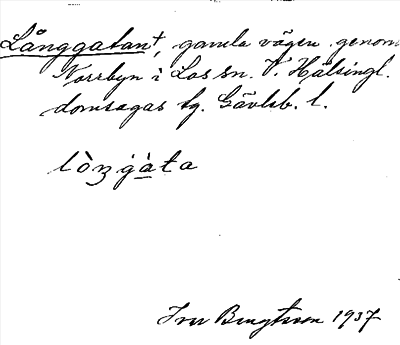 Långgatan†, gamla vägen genom
Norrbyn i Los sn. V. Hälsingl.
domsagas tg. Gävleb. l.
lòŋgàta
Ivar Bengtsson 1937